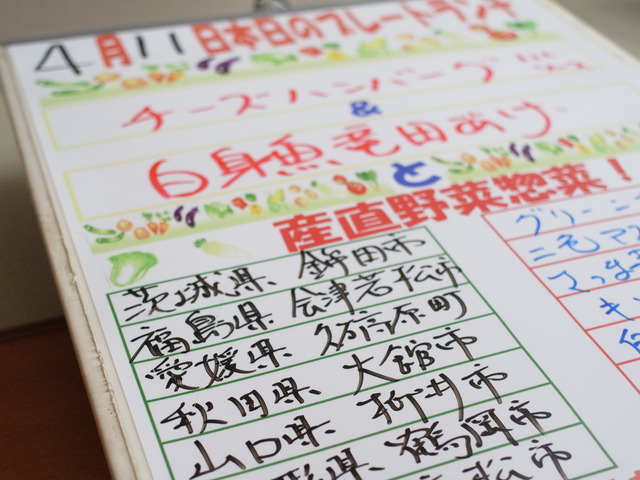 4月11日本日のプレートランチ
チーズハンバーグ
&
白身魚竜田あげ
と
産直野菜惣菜!
茨城県 鉾田市
福島県 会津若松市
愛媛県 久万高原町
秋田県 大館市
山口県 柳井市
県 鶴岡市
松市
グリーン
三色ア
さつま
キ